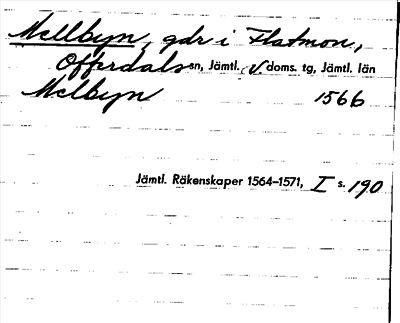 Mellbyn, gdr i Flatmon,
Offerdals sn, Jämtl. V. doms. tg, Jämtl. län
Melbyn 1566
Jämtl. Räkenskaper 1564–1571, I s. 190